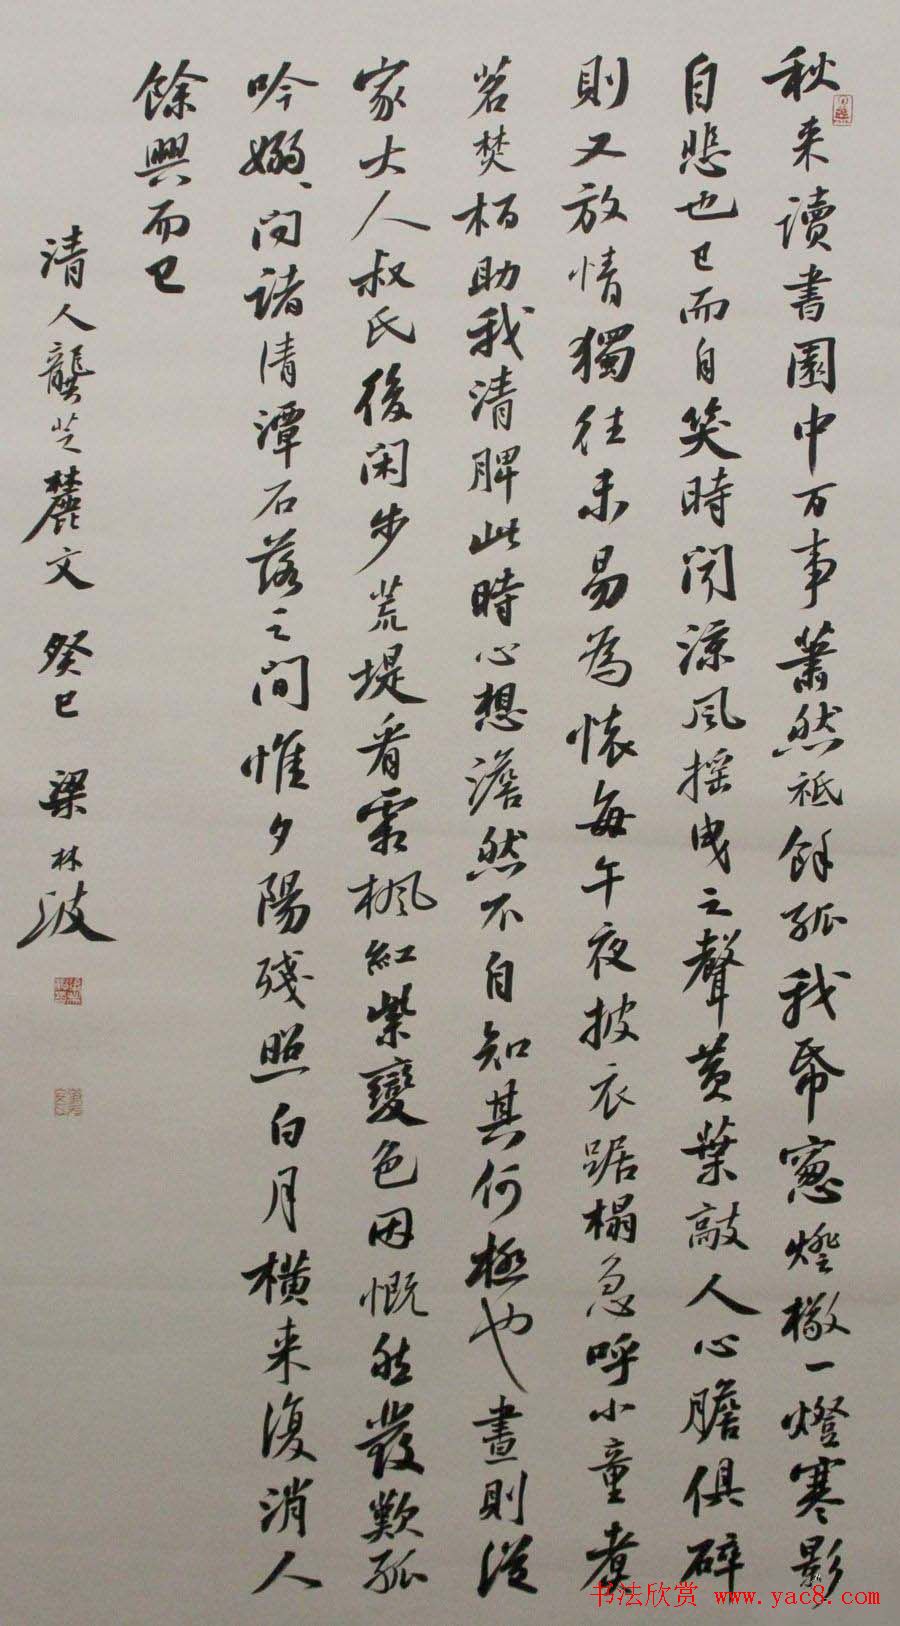 秋来讀書園中百事蕭然祗餘孤我帋窻燈檠一燈寒影
自悲也已而自笑時聞涼風摇曳之聲黄葉敲人心膽俱碎
則又放情獨往未易為懷每午夜披衣踞榻急呼小童煮
茗焚栢助我清脾此時心想澹然不自知其何極也晝則從
家大人叔氏後閑步荒堤看霜楓紅紫變色因慨然發歎孤
吟嫋〻問諸清潭石落之間惟夕陽殘照白月横来復消人
餘興而已
清人龔芝麓文 癸巳 梁林波
书法欣赏 www.yac8.com